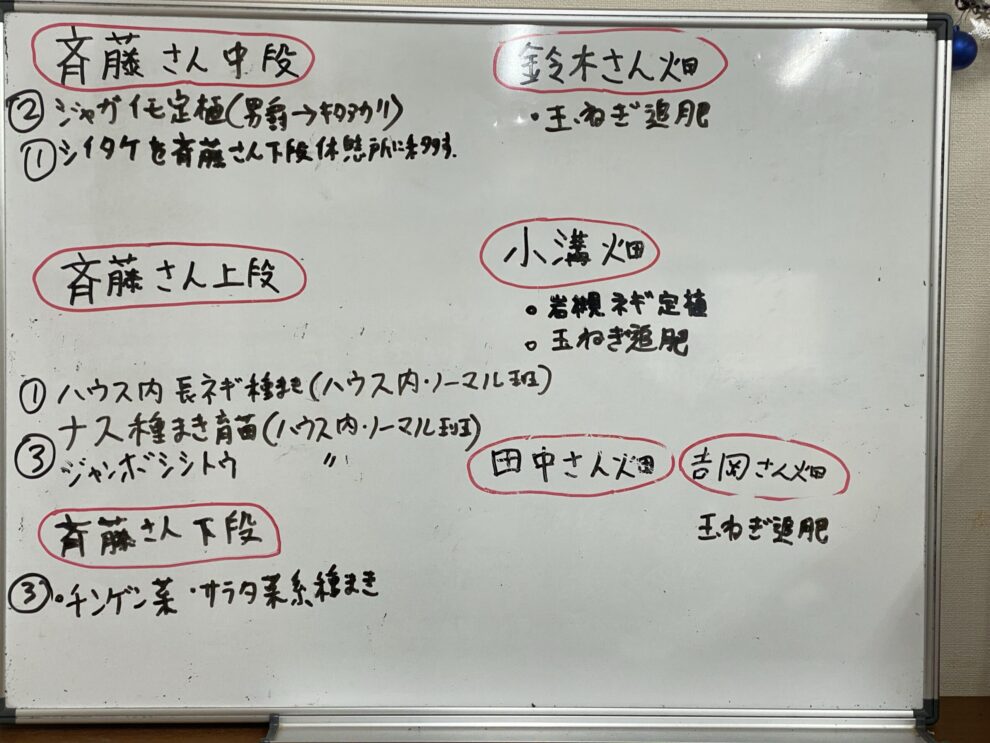 斉藤さん中段
② ジャガイモ定植(男爵→キタアカリ)
① シイタケを斉藤さん下段休憩所に移す.
斉藤さん上段
① ハウス内 長ネギ種まき(ハウス内・ノーマル班)
ナス種まき育苗(ハウス内・ノーマル班)
③ ジャンボシシトウ 〃
斉藤さん下段
③ ・チンゲン菜 ・サラダ菜系種まき
鈴木さん畑
・玉ねぎ追肥
小溝畑
・岩槻ネギ定植
・玉ねぎ追肥
田中さん畑
吉岡さん畑
玉ねぎ追肥